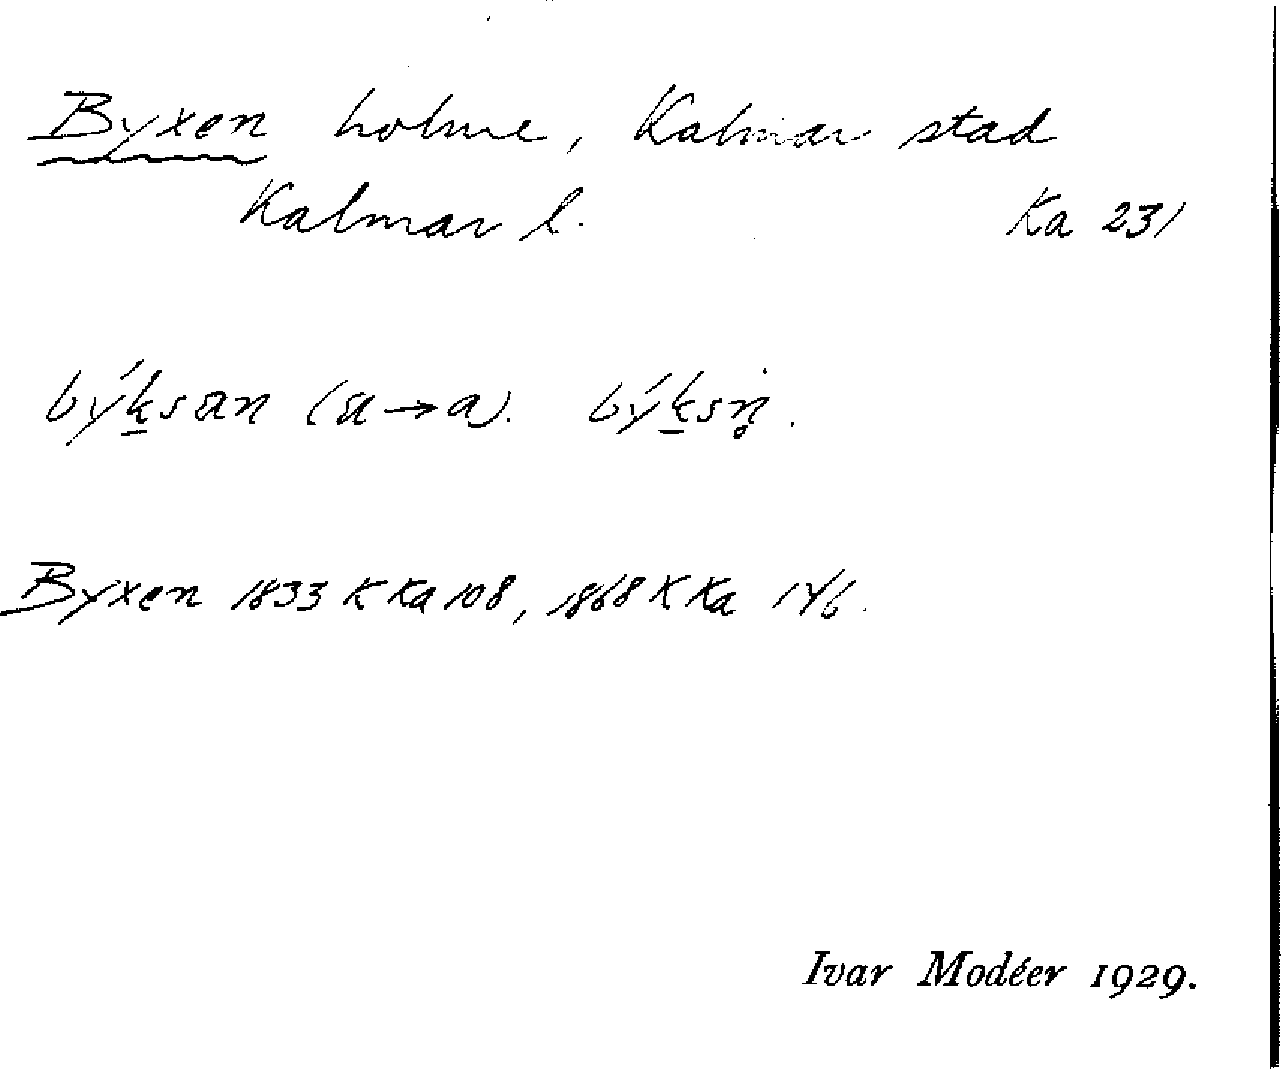 Byxen holme, Kalmar stad
Kalmar l. Ka 231
býk̲san (a→a). býk̲sn̥.
Byxen 1833 K Ka 108, 1868 K Ka 146.
Ivar Modéer 1929.